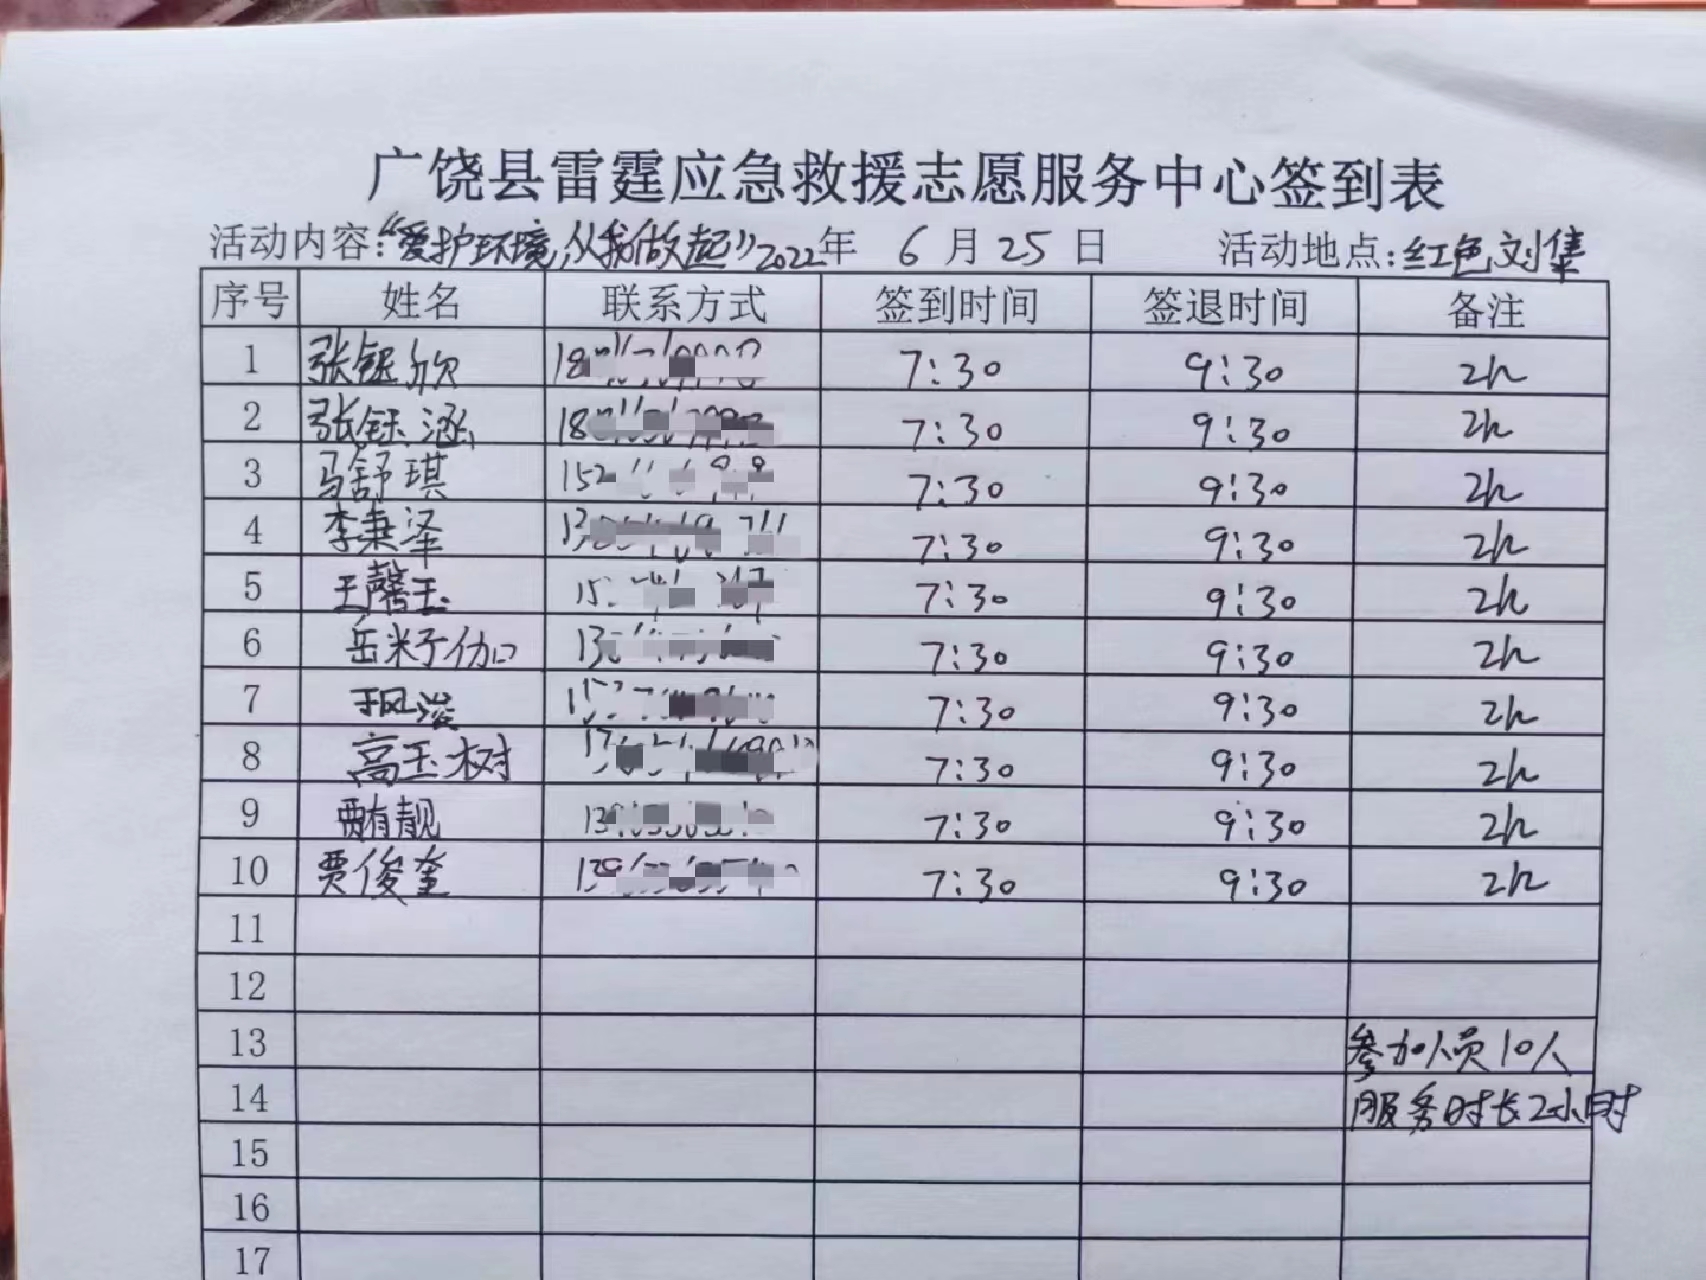 广饶县雷霆应急救援志愿服务中心签到表
活动内容:“爱护环境,从我做起”2022年 6 月 25 日 活动地点:红色刘集
序号 姓名 联系方式 签到时间 签退时间 备注
1 张钰欣 18 7:30 9:30 2h
2 张钰涵 18 7:30 9:30 2h
3 马舒琪 152 7:30 9:30 2h
4 李秉泽 13 7:30 9:30 2h
5 王馨玉 15 7:30 9:30 2h
6 岳籽伽 13 7:30 9:30 2h
7 于风浚 15 7:30 9:30 2h
8 高玉树 13 7:30 9:30 2h
9 贾有靓 13 7:30 9:30 2h
10 贾俊奎 139 7:30 9:30 2h
11
12
13 参加人员10人
14 服务时长2小时
15
16
17